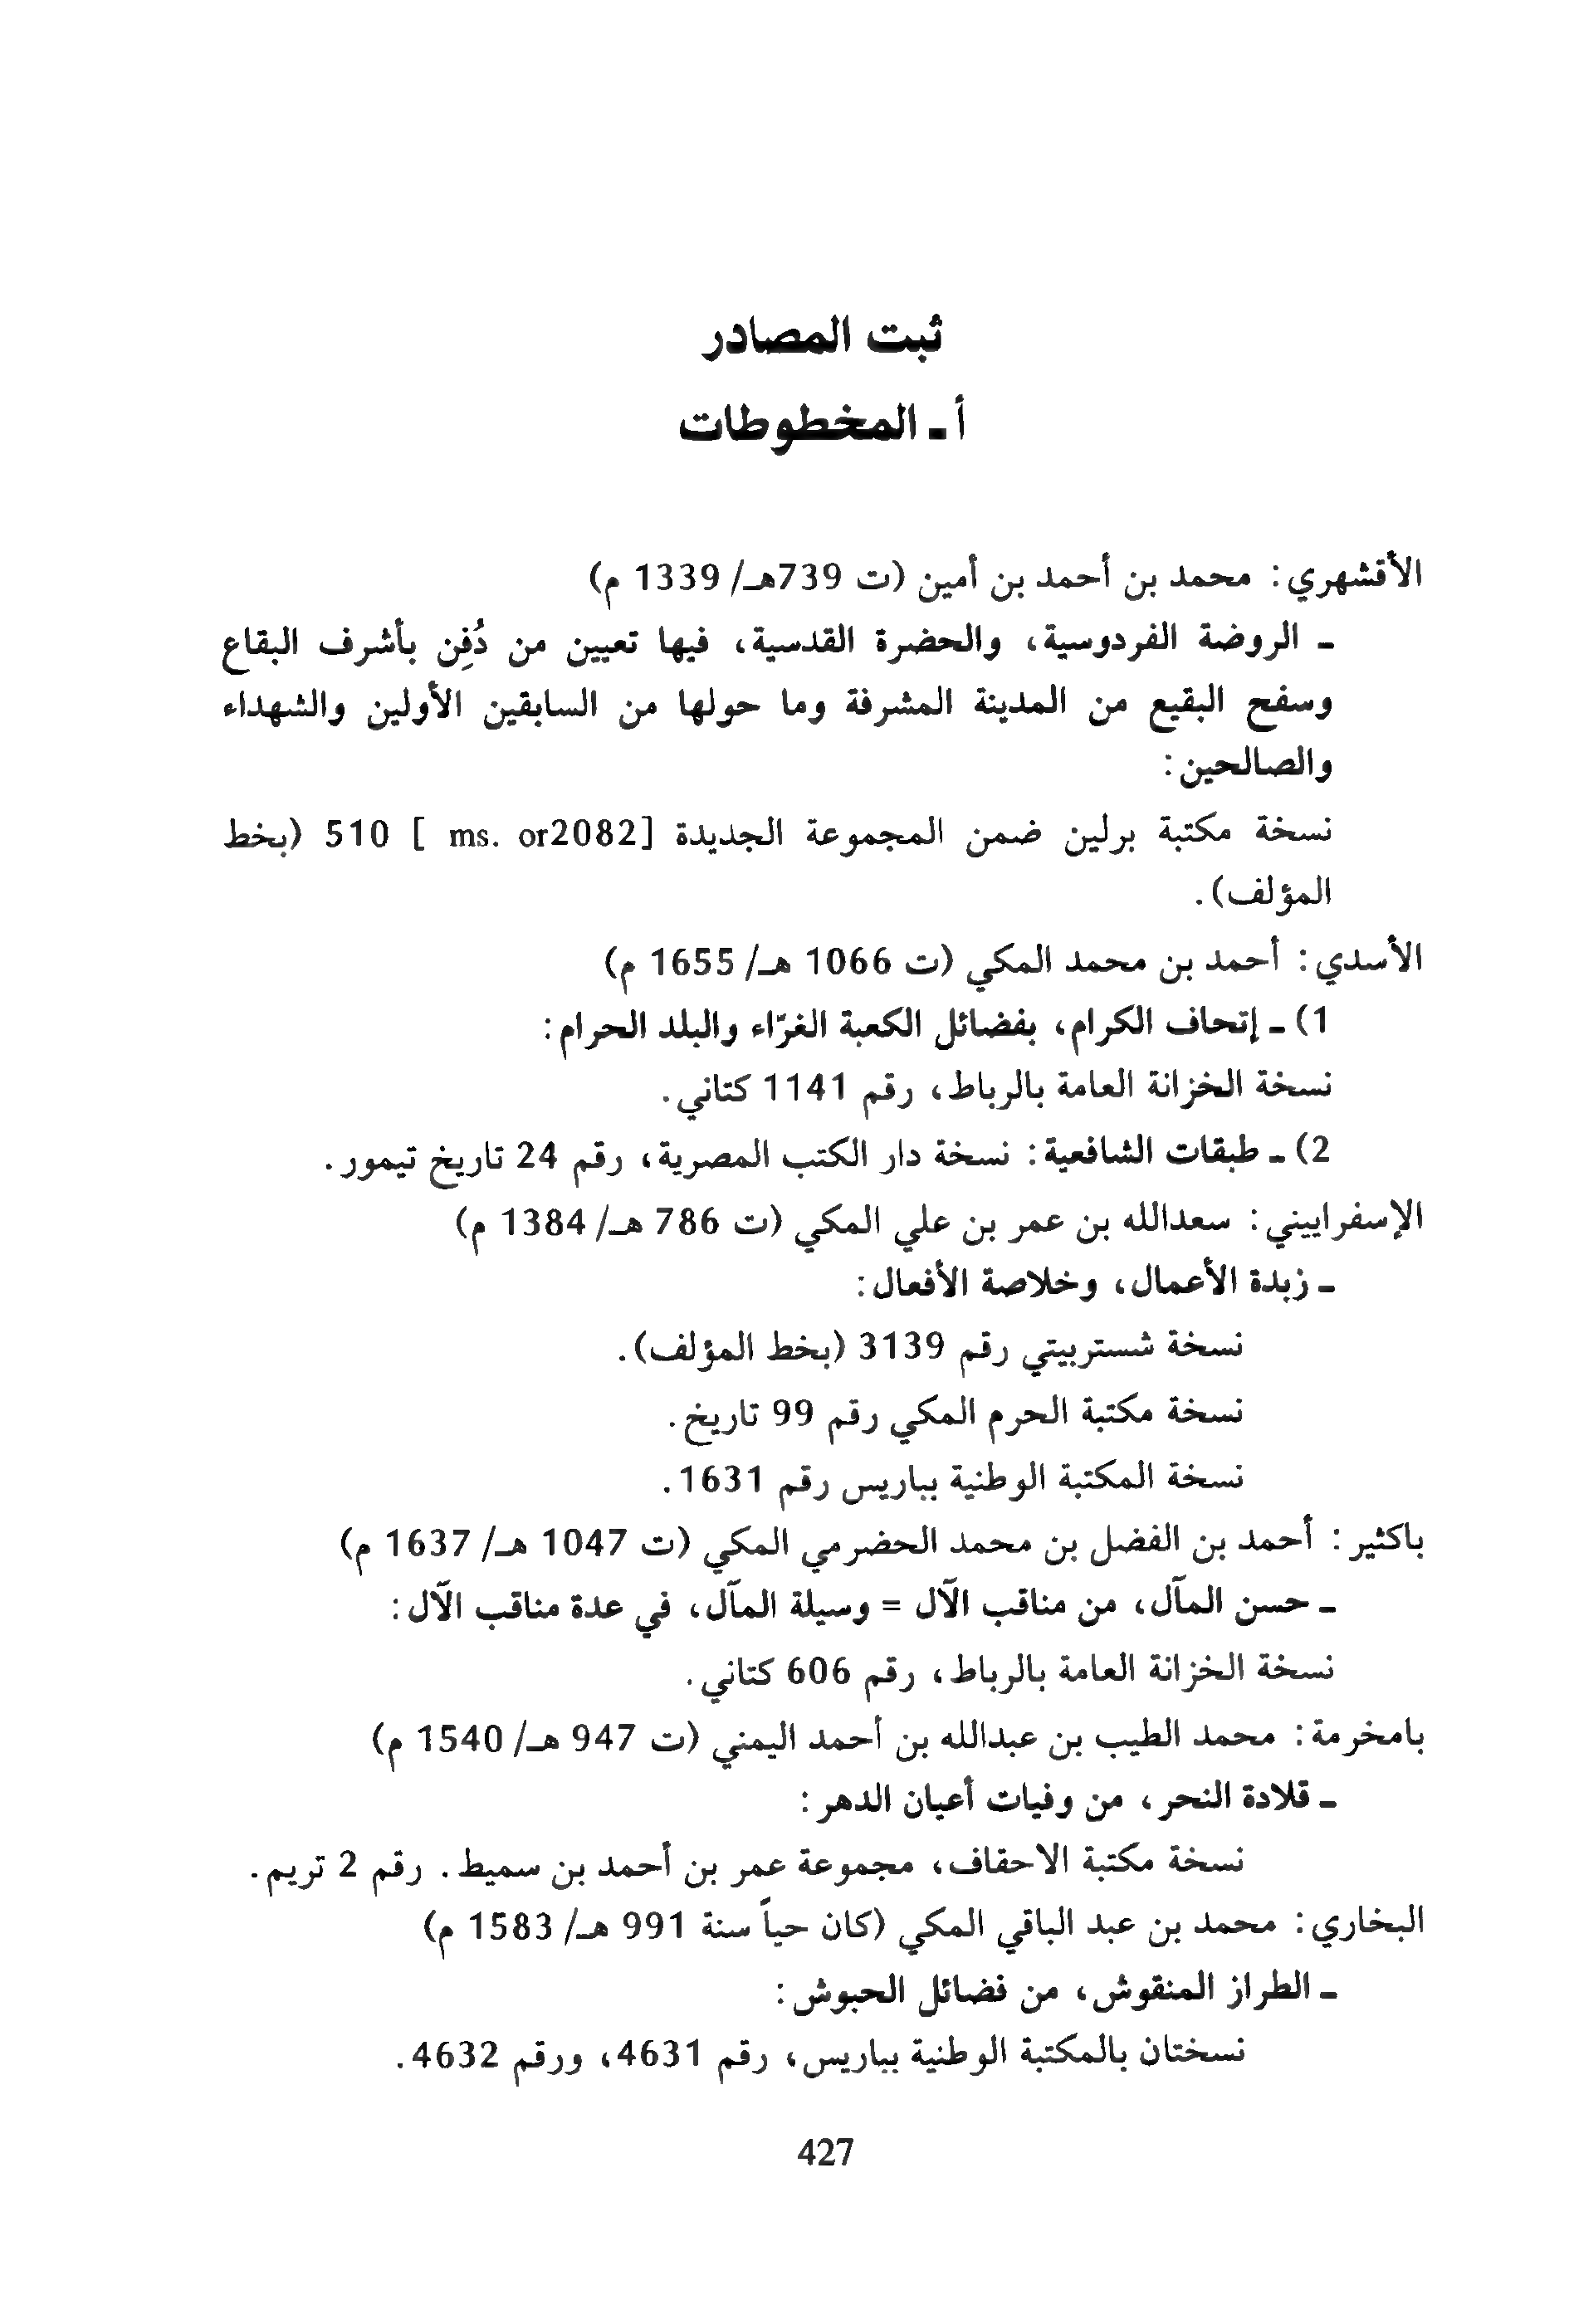 ثبت المصادر
أ ـ المخطوطات
الأقشهري: محمد بن أحمد بن أمين (ت 739هـ/ 1339 م)
ـ الروضة الفردوسية، والحضرة القدسية، فيها تعيين من دُفِن بأشرف البقاع
وسفح البقيع من المدينة المشرفة وما حولها من السابقين الأولين والشهداء
والصالحين:
نسخة مكتبة برلين ضمن المجموعة الجديدة [ms. or2082 ] 510 (بخط
المؤلف).
الأسدي: أحمد بن محمد المكي (ت 1066 هـ/ 1655 م)
1) ـ إتحاف الكرام، بفضائل الكعبة الغرّاء والبلد الحرام:
نسخة الخزانة العامة بالرباط، رقم 1141 كتاني.
2) ـ طبقات الشافعية: نسخة دار الكتب المصرية، رقم 24 تاريخ تيمور.
الإسفراييني: سعدالله بن عمر بن علي المكي (ت 786 هـ/ 1384 م)
ـ زبدة الأعمال، وخلاصة الأفعال:
نسخة شستربيتي رقم 3139 (بخط المؤلف).
نسخة مكتبة الحرم المكي رقم 99 تاريخ.
نسخة المكتبة الوطنية بباريس رقم 1631.
باكثير: أحمد بن الفضل بن محمد الحضرمي المكي (ت 1047 هـ/ 1637 م)
ـ حسن المآل، من مناقب الآل = وسيلة المآل، في عدة مناقب الآل:
نسخة الخزانة العامة بالرباط، رقم 606 كتاني.
بامخرمة: محمد الطيب بن عبدالله بن أحمد اليمني (ت 947 هـ/ 1540 م)
ـ قلادة النحر، من وفيات أعيان الدهر:
نسخة مكتبة الاحقاف، مجموعة عمر بن أحمد بن سميط. رقم 2 تريم.
البخاري: محمد بن عبد الباقي المكي (كان حياً سنة 991 هـ/ 1583 م)
ـ الطراز المنقوش، من فضائل الحبوش:
نسختان بالمكتبة الوطنية بباريس، رقم 4631، ورقم 4632.
427